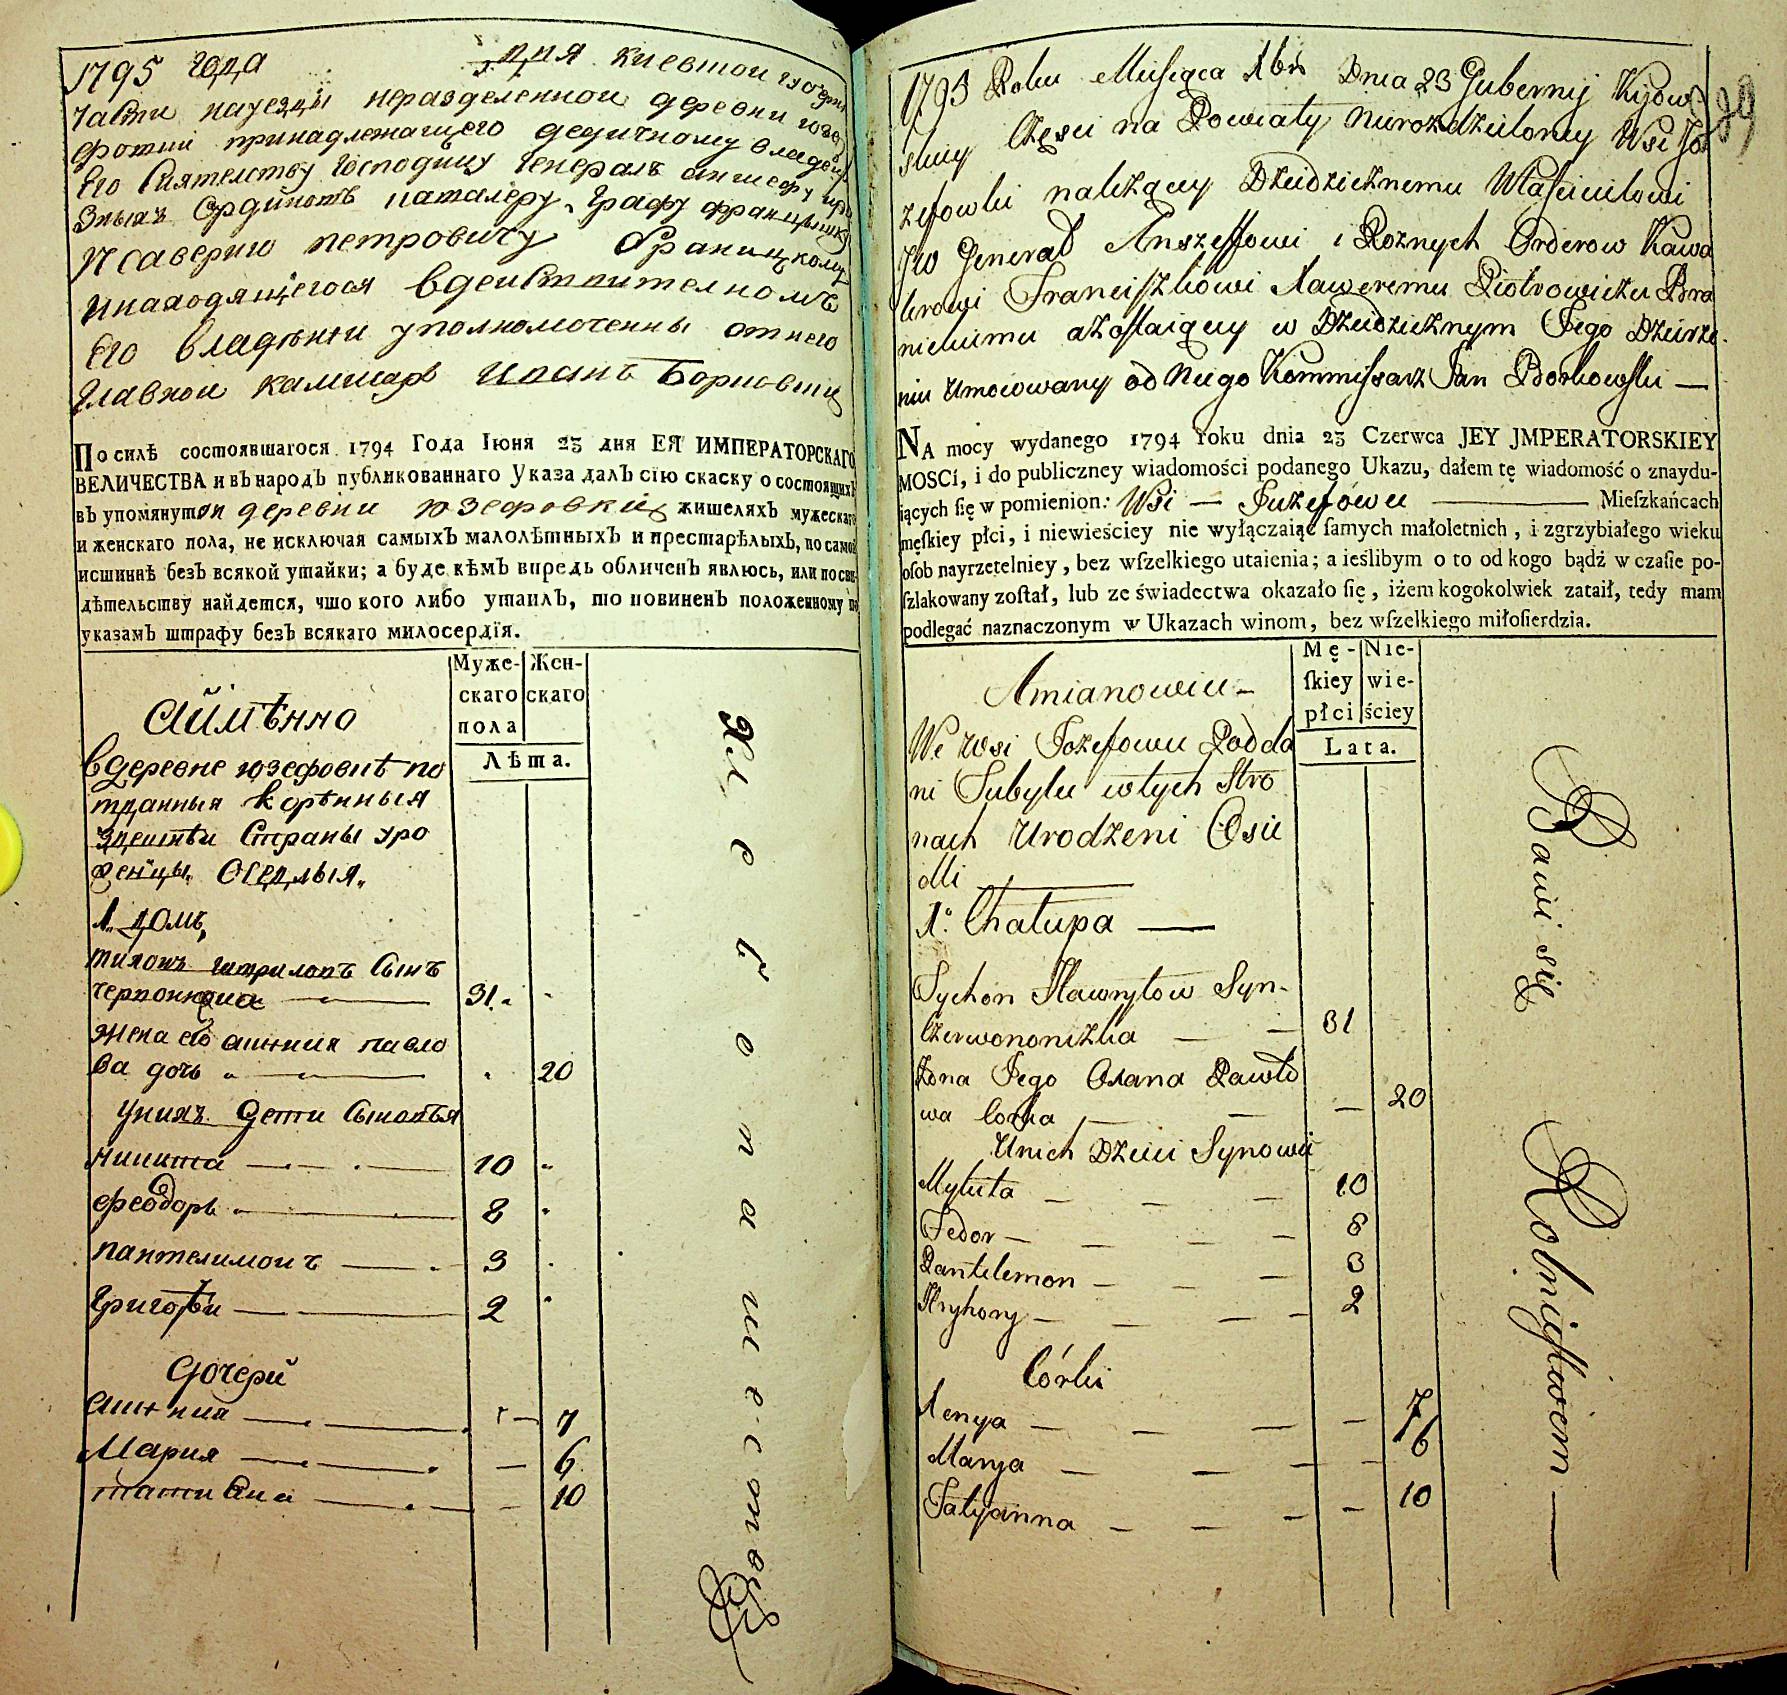 1795 года дня Киевской изъ
части на уезды неразделенной деревни юзе
фовки принадлежащего дедичному владе
Его Сиятелству Господину Генералъ аншефу
Орденовъ каталеру Графу францишку
Ксаверию петровичу Браницкому
инаходящегося вдеиствителномъ
Его владении уполномоченны отнего
главной камисаръ Иоанъ Борковски
По силѣ состоявшагося 1794 Года Іюня 23 дня ЕЯ ИМПЕРАТОРСКАГО
ВЕЛИЧЕСТВА и въ народъ публикованнаго Указа далъ сію скаску о состоящихъ
въ упомянутои деревни юзефовки жителяхъ мужескаго
и женскаго пола, не исключая самыхъ малолѣтныхъ и престарѣлыхъ, по самой
истиннѣ безъ всякой утайки; а буде кѣмъ впредь обличенъ явлюсь, или по сви-
дѣтельству найдется, что кого либо утаилъ, то повиненъ положенному по
указамъ штрафу безъ всякаго милосердія.
Муже- Жен-
скаго скаго
пола
Лѣта.
Аймѣнно
вдеревне юзефовкѣ по
тданныя корѣнныя
здешнѣи Страны уро
женцы Оседлыя
1. домъ
тихонъ гавриловъ Сынъ
31
жена его павло
ва дочь 20
Уних дети Сыновья
Никита 10
феодоръ 8
пантелимонъ 3
Григорѣи 2
дочери
7
Мария 6
татиана 10
Хлебопашестомъ
1795 Roku Miesiąca Dnia 23 Gubernij Kijow
skiey Części na Powiaty nierozdzieloney Wsi Jo
zefowki należącey Dziedzicznemu Właścicielowi
JW Generał Anszeffowi i Roznych Orderow Kawa
lerowi Franciszkowi Xaweremu Piotrowiczu Bra
nickiemu a zostaiącey w Dziedzicznym Jego Dzierże
niu Umocowany od Niego Kommissarz Jan Borkowski —
NA mocy wydanego 1794 roku dnia 23 Czerwca JEY JMPERATORSKIEY
MOSCi, i do publiczney wiadomości podanego Ukazu, dałem tę wiadomość o znaydu-
iących się w pomienion: Wsi — Juzefówce — Mieſzkańcach
męſkiey płci, i niewieściey nie wyłączaiąc ſamych małoletnich, i zgrzybiałego wieku
oſob nayrzetelniey, bez wſzelkiego utaienia; a ieślibym o to od kogo bądź w czaſie po-
ſzlakowany zoſtał, lub ze świadectwa okazało ſię, iżem kogokolwiek zataił, tedy mam
podlegać naznaczonym w Ukazach winom, bez wſzelkiego miłoſierdzia.
Mę- Nie-
ſkiey wie-
płci ściey
Lata.
Amianowicie
We Wsi Jozefowce Podda
ni Tubylce wtych Stro
nach Urodzeni Osie
dli
1° Chałupa —
Tychon Hawryłow Syn
Czerwononiżka — 31
Żona Jego Pawło
wa Corka — 20
Unich Dzieci Synowie
Mykita 10
Fedor 8
Pantelemon 3
Hryhory 2
Córki
Xenya 7
Marya 6
Tatyanna 10
Bawi się Rolnictwem —